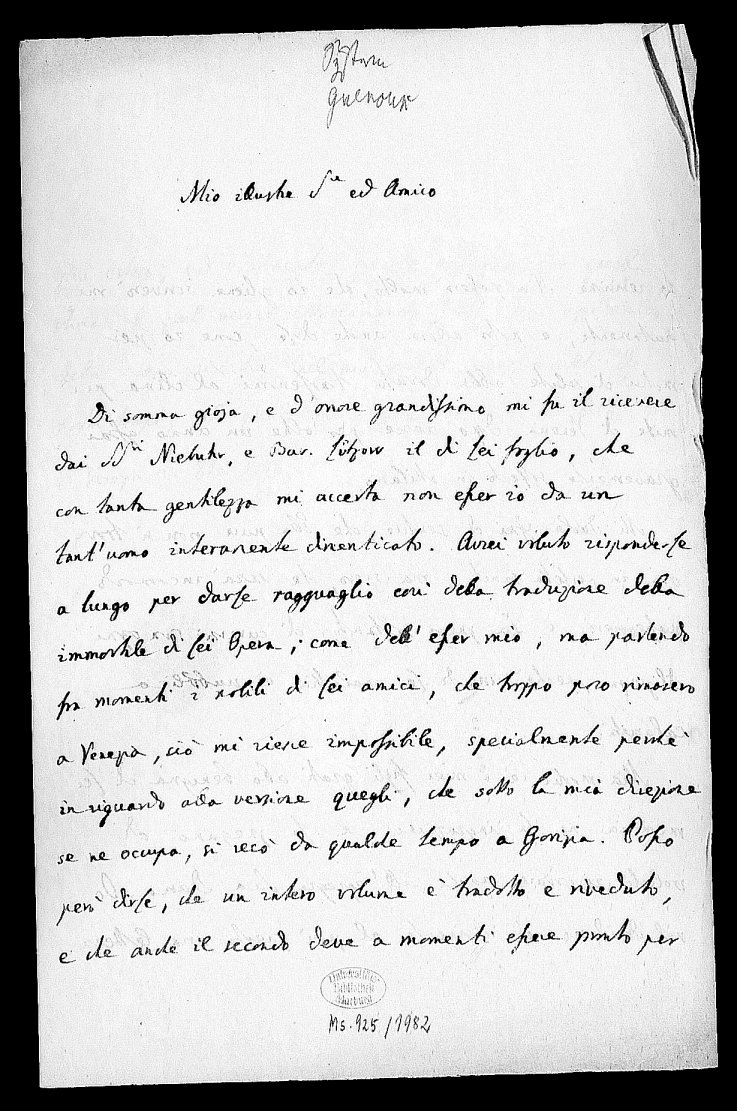 System
Mio illustre S.re ed Amico
Di somma gioja, e d'onore grandissimo mi fu il ricevere
dai SS.ri Niebuhr, e Bar. Lützow il di Lei foglio, che
con tanta gentilezza mi accerta non esser io da un
tant'uomo interamente dimenticato. Avrei voluto risponderLe
a lungo per darLe ragguaglio così della traduzione della
immortale di Lei Opera, come dell' esser mio, ma partendo
fra momenti i nobili di Lei amici, che troppo poco rimasero
a Venezia, ciò mi riesce impossibile, specialmente perchè
in riguardo alla versione quegli, che sotto la mia direzione
se ne occupa, si recò da qualche tempo a Gorizia. Posso
però dirLe, che un intero volume è tradotto e riveduto,
e che anche il secondo deve a momenti essere pronto per
Universitäts-
Bibliothek
Marburg
Ms. 925/1982